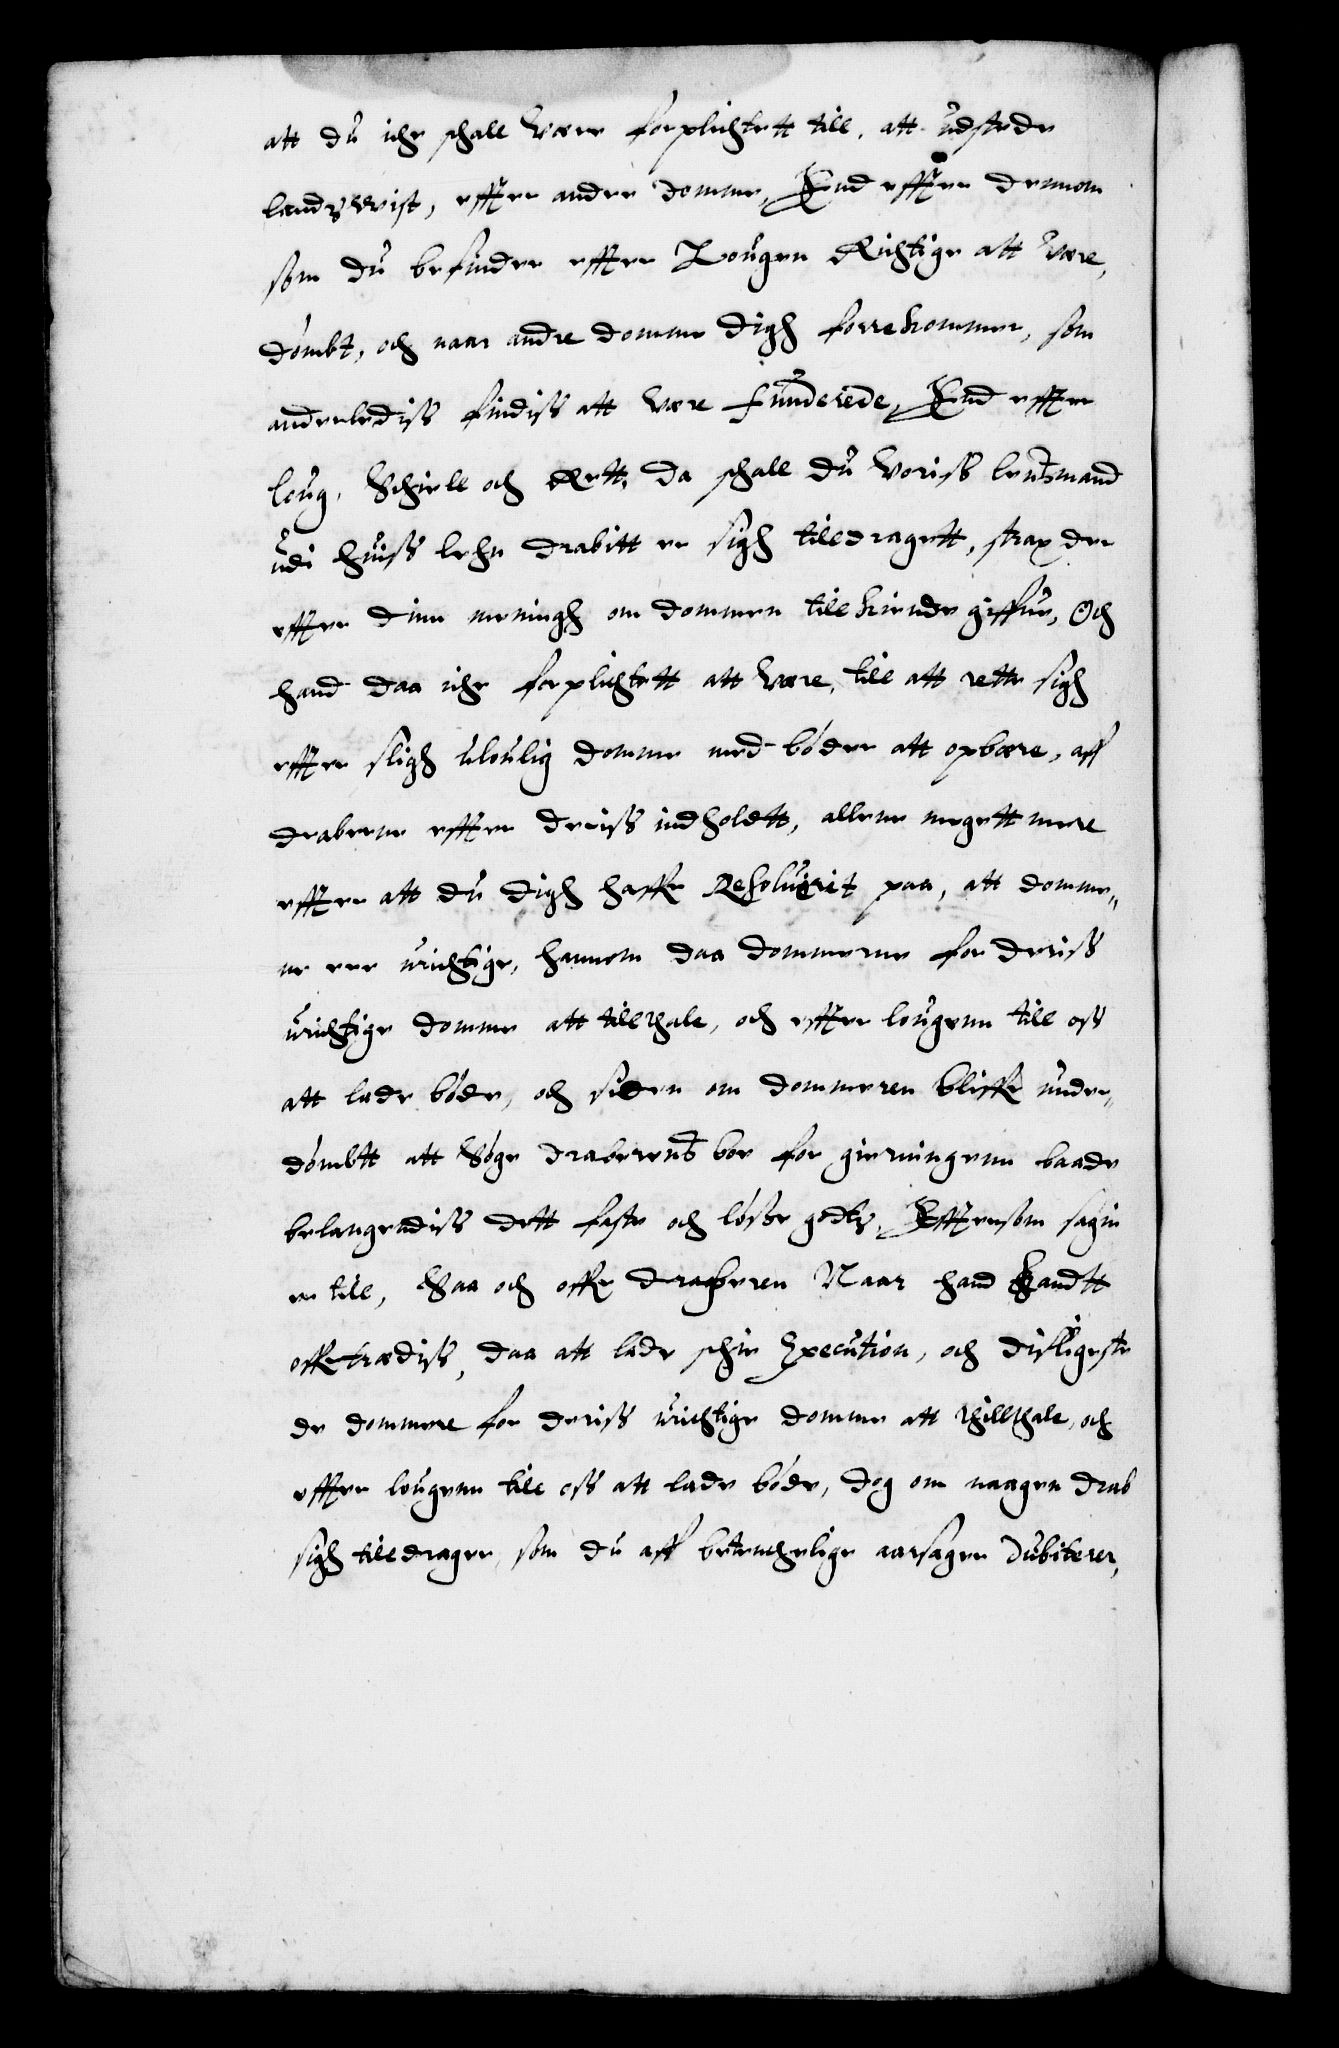 att du iche schall Være forplichtett till, att udstede
landzwist, effter andre domme, End effter dennom
som du befinder effter Lougen Richtige att Være,
dömbt, och naar andre domme digh forrekommer, som
anderlediss findiss att Være funderede, End effter
loug, Schiell och Rett, da schall du Voriss lentzmand
udi huiss lehn drabitt er sigh tilldragett, strax der
effter dinn meningh om dommen tillkiende giffue, Och
hand daa iche forplichtett att Være, till att rette sigh
effter sligh uloulig domme med böder att opbære, aff
draberne effter deriss indholdtt, allene megett mere
effter att du digh haffr Resoluirit paa, att domme„
ne ere urichtige, hannom daa dommerne for deriss
urichtige domme att tillthale, och effter lougenn till oss
att lade böde, och siden om dommeren bliffr under„
dömbtt att Söge draberens boe for gierningenn baade
belangendiss dett faste och lösse godtz, Effterssom sagin
er till, Saa och offr draberen Naar hand kandtt
offrtrædiss, daa att lade schie Execution, och dissligeste
de dommere for deriss urichtige domme att thillthale, och
effter lougenn till oss att lade böde, dog om naagen drab
sigh tilldrager, som du aff betenchelige aarsager dubiterer,